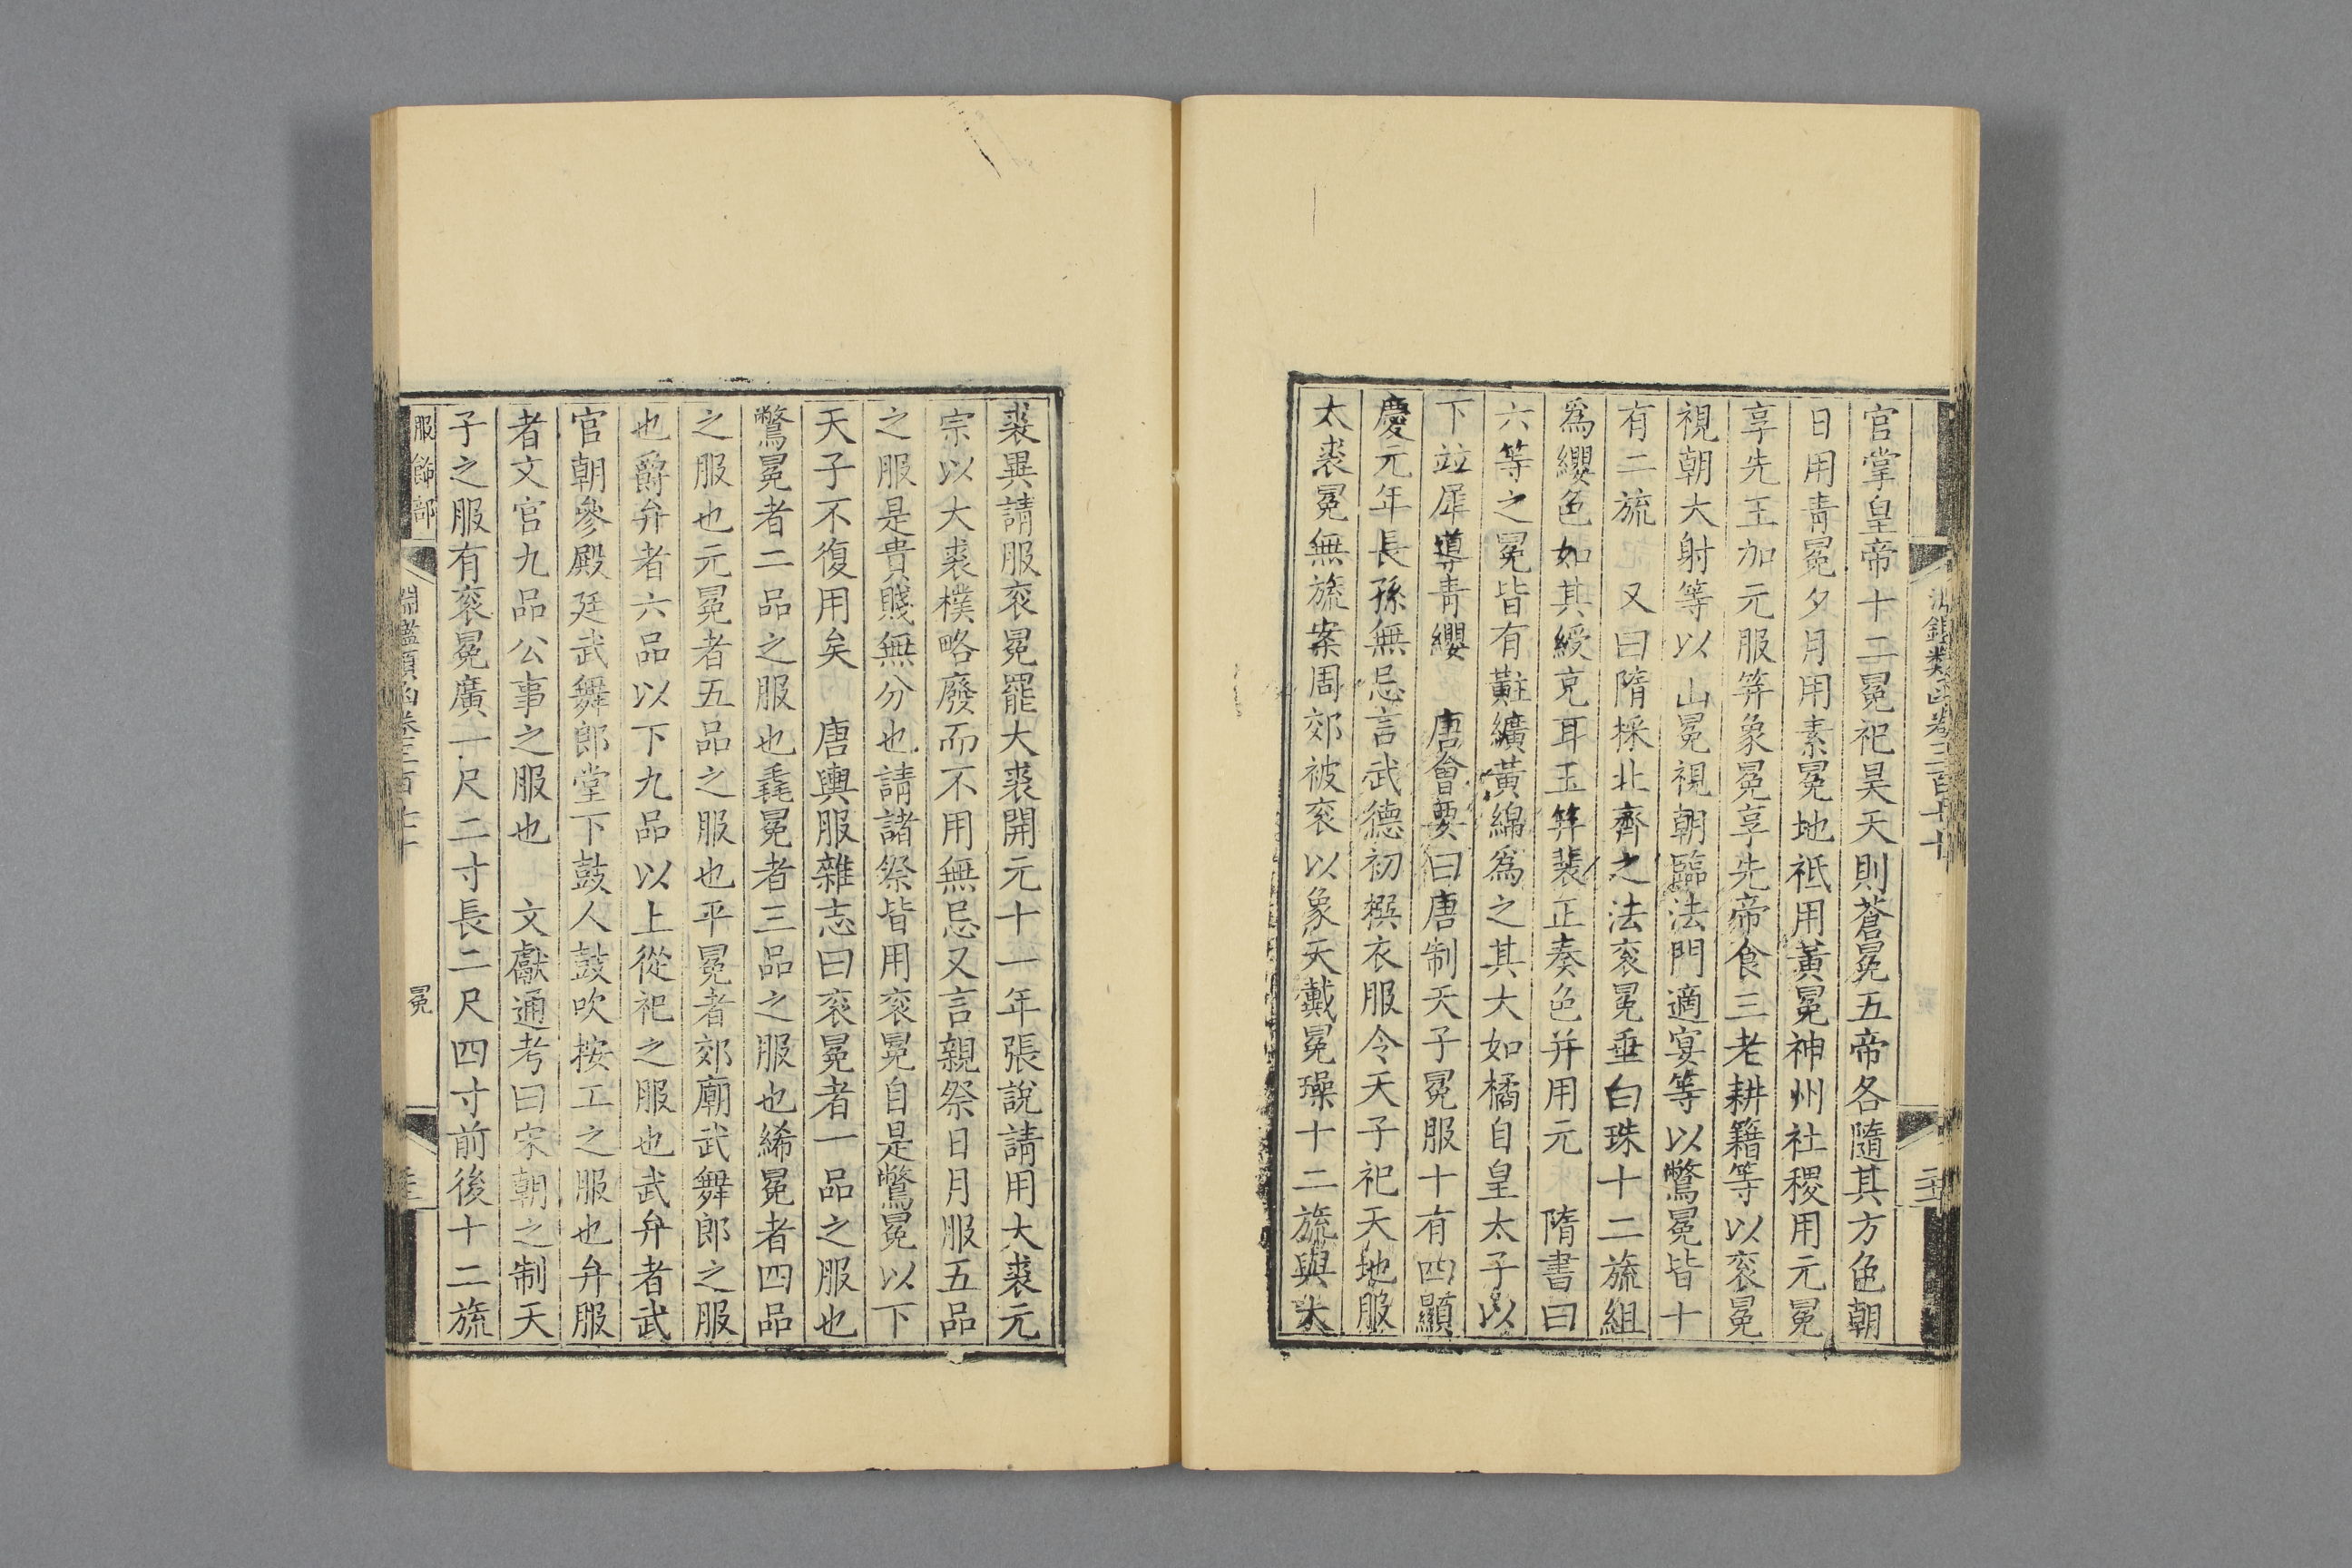 官掌皇帝十二冕祀昊天則蒼冕五帝各隨其方色朝
日用靑冕夕月用素冕地祗用黃冕神州社稷用元冕
享先王加元服筭象冕享先帝食三老耕籍等以衮冕
視朝大射等以山冕視朝臨法門適宴等以鷩冕皆十
有二旒　又曰隋採北齊之法衮冕垂白珠十二旒組
爲纓色如其綬充耳玉笄裴正奏色并用元　隋書曰
六等之冕皆有黈纊黃綿爲之其大如橘自皇太子以
下竝犀導靑纓　唐會要曰唐制天子冕服十有四顯
慶元年長孫無忌言武德初撰衣服令天子祀天地服
大裘冕無旒案周郊被衮以象天戴冕璪十二旒與大
裘異請服衮冕罷大裘開元十一年張說請用大裘元
宗以大裘樸略廢而不用無忌又言親祭日月服五品
之服是貴賤無分也請諸祭皆用衮冕自是鷩冕以下
天子不復用矣　唐輿服雜志曰衮冕者一品之服也
鷩冕者二品之服也毳冕者三品之服也絺冕者四品
之服也元冕者五品之服也平冕者郊廟武舞郎之服
也爵弁者六品以下九品以上從祀之服也武弁者武
官朝參殿廷武舞郎堂下鼓人鼓吹按工之服也弁服
者文官九品公事之服也　文獻通考曰宋朝之制天
子之服有衮冕廣一尺二寸長二尺四寸前後十二旒
服飾部
淵鑑類函卷三百七十
冕